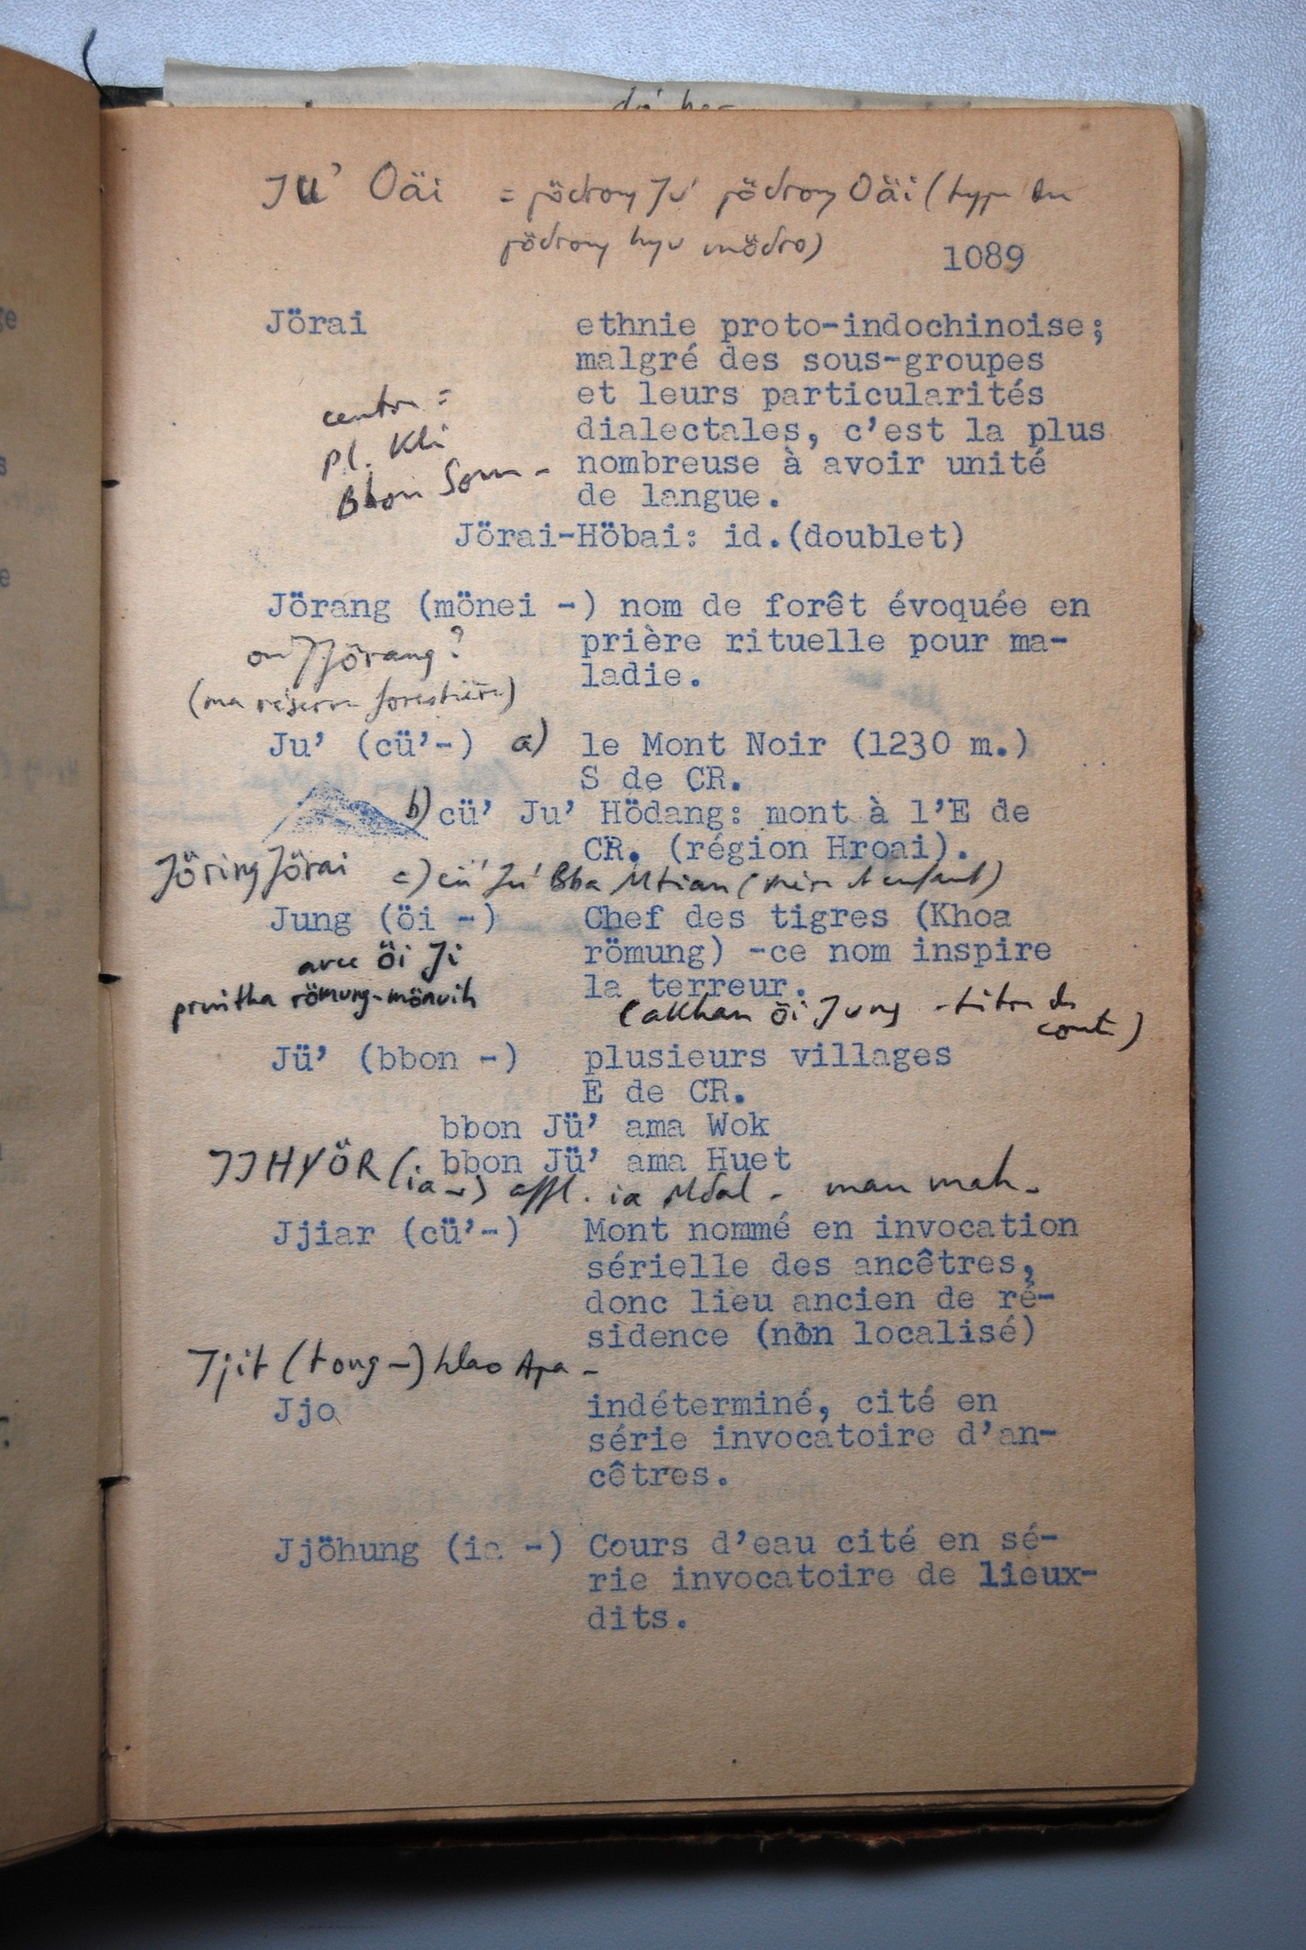 Ju' Oäi = pödrong Ju' pödrong Oäi (type du
pödrong hyu mödro)
1089
Jörai ethnie proto-indochinoise;
malgré des sous-groupes
et leurs particularités
centre = dialectales, c'est la plus
pl. Kli nombreuse à avoir unité
Bbon Som - de langue.
Jörai-Höbai: id.(doublet)
Jörang (mönei -) nom de forêt évoquée en
ou Jjörang? prière rituelle pour ma-
(ma réserve forestière) ladie.
Ju' (cü'-) a) le Mont Noir (1230 m.)
S de CR.
b) cü' Ju' Hödang: mont à l'E de
CR. (région Hroai).
Jöring Jörai c) cü' Ju' Bba Mtian (mère et enfant)
Jung (öi -) Chef des tigres (Khoa
avec öi Ji römung) -ce nom inspire
römung-mönuih la terreur.
(akhan öi Jung - titre de
conte)
Jü' (bbon -) plusieurs villages
E de CR.
bbon Jü' ama Wok
bbon Jü' ama Huet
JJHYÖR (ia -) affl. ia Mdal -
Jjiar (cü'-) Mont nommé en invocation
sérielle des ancêtres,
donc lieu ancien de ré-
sidence (non localisé)
Jjit (tong -) hlao Apa -
Jjo indéterminé, cité en
série invocatoire d'an-
cêtres.
Jjöhung (ia -) Cours d'eau cité en sé-
rie invocatoire de lieux-
dits.